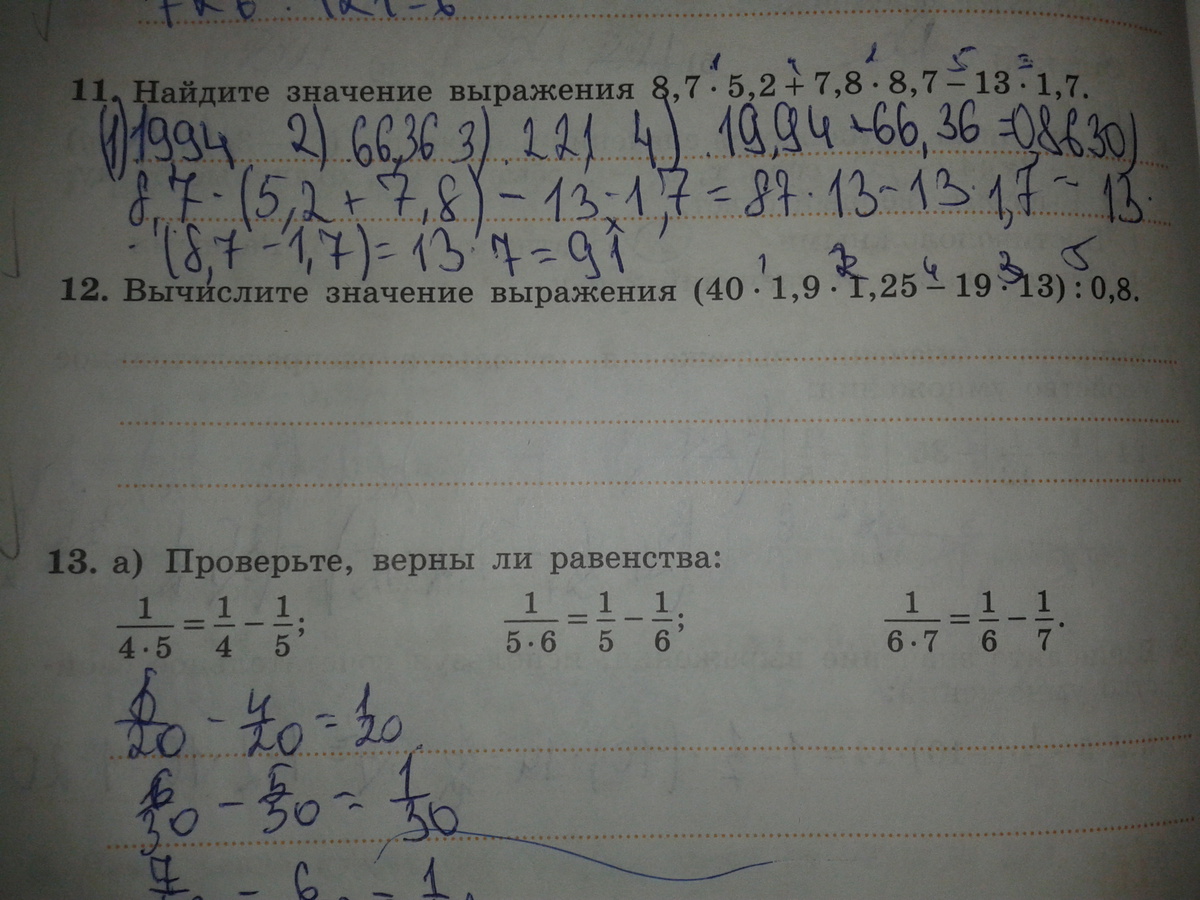 11. Найдите значение выражения 8,7 · 5,2 + 7,8 · 8,7 − 13 · 1,7.
1) 1994 2) 66,36 3) 221 4) 19,94 + 66,36 = 08630)
8,7 · (5,2 + 7,8) − 13 · 1,7 = 87 · 13 − 13 · 1,7 = 13 ·
· (8,7 − 1,7) = 13 · 7 = 91
12. Вычислите значение выражения (40 · 1,9 · 1,25 − 19 · 13) : 0,8.
13. а) Проверьте, верны ли равенства:
1/(4·5) = 1/4 − 1/5; 1/(5·6) = 1/5 − 1/6; 1/(6·7) = 1/6 − 1/7.
5/20 − 4/20 = 1/20
6/30 − 5/30 = 1/30
7 − 6 = 1